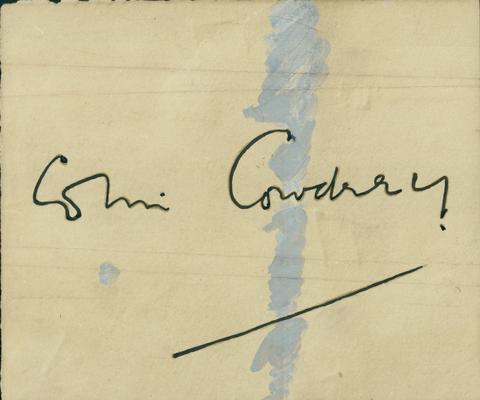 Colin Cowdrey